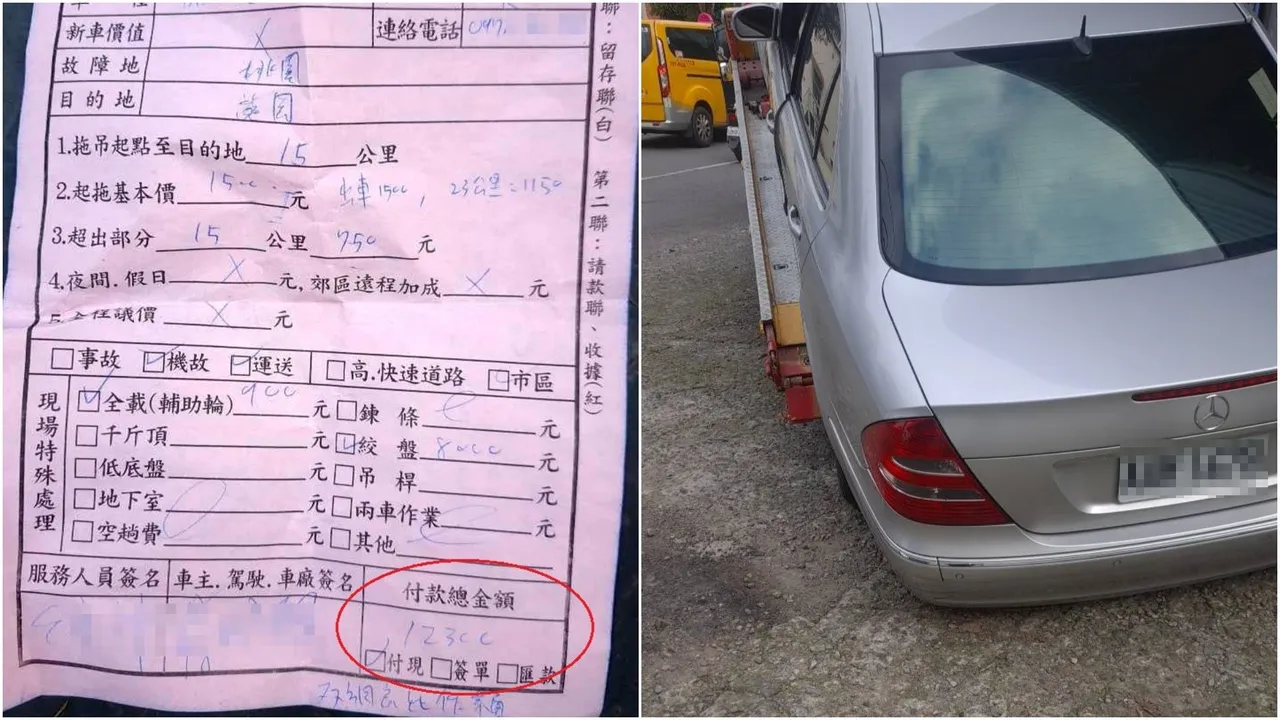 新車價值 X 連絡電話 097.
故障地 桃園
目的地
1.拖吊起點至目的地 15 公里
2.起拖基本價 1500 元 1500, 23公里=1150
3.超出部分 15 公里 750 元
4.夜間.假日 X 元,郊區遠程加成 X 元
議價 X 元
事故 機故 運送 高.快速道路 市區
現場特殊處理
全載(輔助輪) 900 元 鍊條 元
千斤頂 元 絞盤 8000 元
低底盤 元 吊桿 元
地下室 元 兩車作業 元
空趟費 元 其他
服務人員簽名 車主.駕駛.車廠簽名 付款總金額
12300
付現 簽單 匯款
聯:留存聯(白) 第二聯:請款聯、收據(紅)